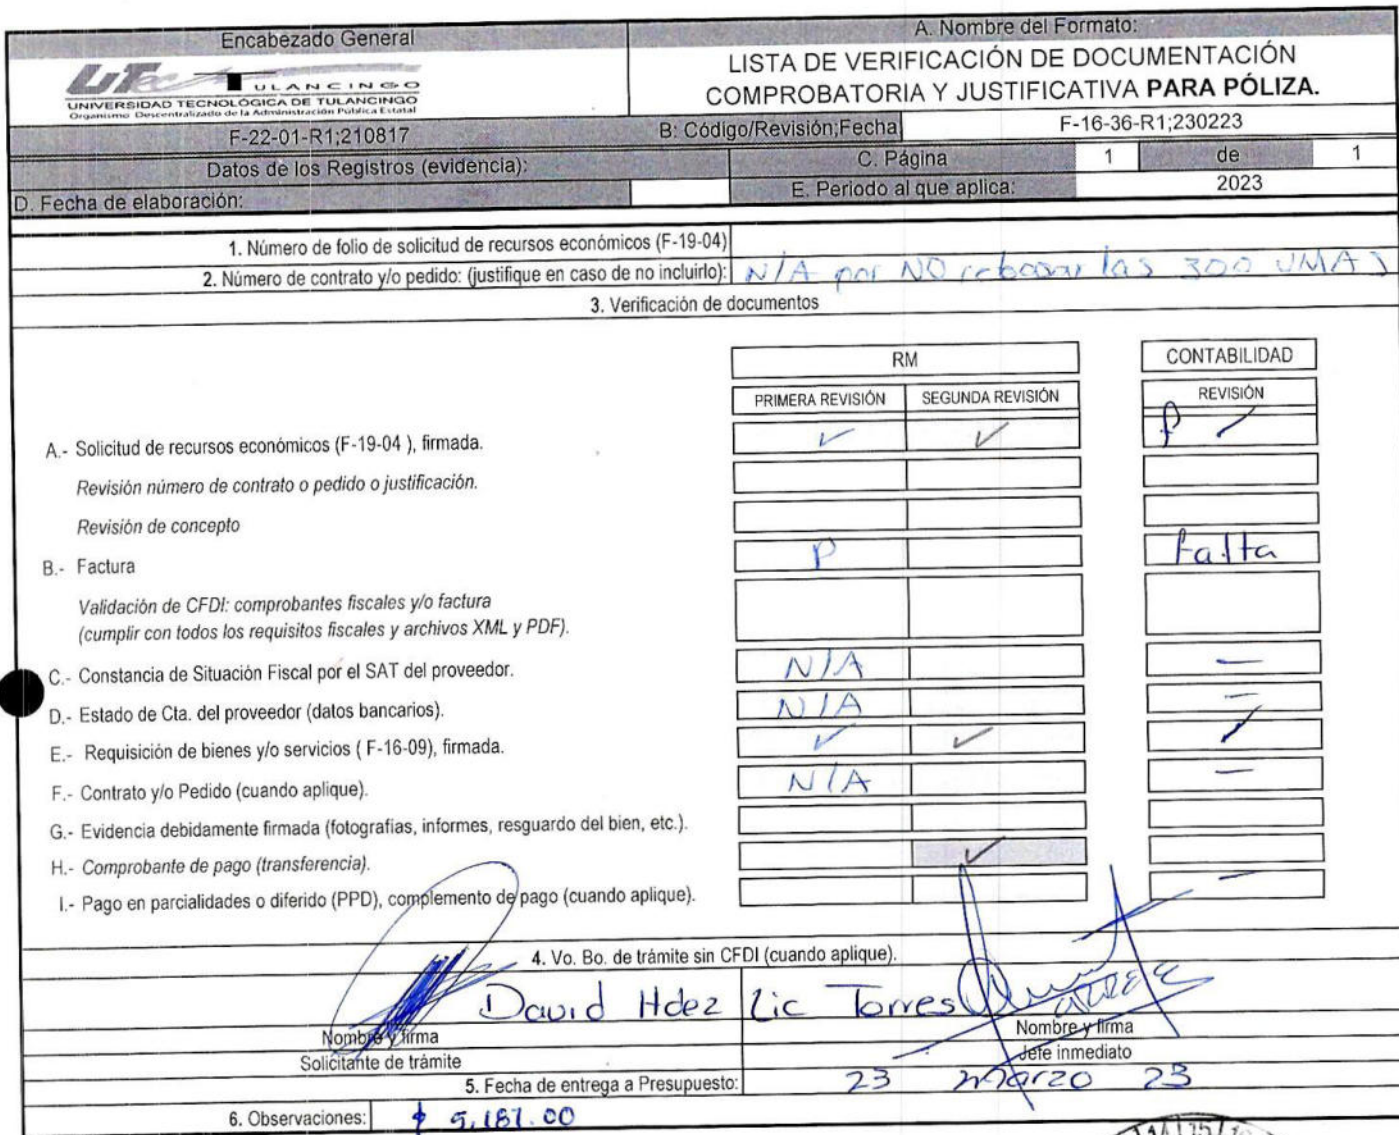 Encabezado General
A. Nombre del Formato:
UTec TULANCINGO
UNIVERSIDAD TECNOLÓGICA DE TULANCINGO
Organismo Descentralizado de la Administración Pública Estatal
LISTA DE VERIFICACIÓN DE DOCUMENTACIÓN
COMPROBATORIA Y JUSTIFICATIVA PARA PÓLIZA.
F-22-01-R1;210817
B: Código/Revisión;Fecha
F-16-36-R1;230223
Datos de los Registros (evidencia):
C. Página 1 de 1
D. Fecha de elaboración:
E. Periodo al que aplica: 2023
1. Número de folio de solicitud de recursos económicos (F-19-04)
2. Número de contrato y/o pedido: (justifique en caso de no incluirlo): N/A por NO rebasar las 300 UMAS
3. Verificación de documentos
RM CONTABILIDAD
PRIMERA REVISIÓN SEGUNDA REVISIÓN REVISIÓN
A.- Solicitud de recursos económicos (F-19-04 ), firmada. ✓ ✓ P ✓
Revisión número de contrato o pedido o justificación.
Revisión de concepto
B.- Factura P falta
Validación de CFDI: comprobantes fiscales y/o factura
(cumplir con todos los requisitos fiscales y archivos XML y PDF).
C.- Constancia de Situación Fiscal por el SAT del proveedor. N/A —
D.- Estado de Cta. del proveedor (datos bancarios). N/A —
E.- Requisición de bienes y/o servicios ( F-16-09), firmada. ✓ ✓ ✓
F.- Contrato y/o Pedido (cuando aplique). N/A —
G.- Evidencia debidamente firmada (fotografias, informes, resguardo del bien, etc.).
H.- Comprobante de pago (transferencia). ✓
I.- Pago en parcialidades o diferido (PPD), complemento de pago (cuando aplique). —
4. Vo. Bo. de trámite sin CFDI (cuando aplique).
David Hdez Lic Torres
Nombre y firma Nombre y firma
Solicitante de trámite Jefe inmediato
5. Fecha de entrega a Presupuesto: 23 Marzo 23
6. Observaciones: $ 5,187.00